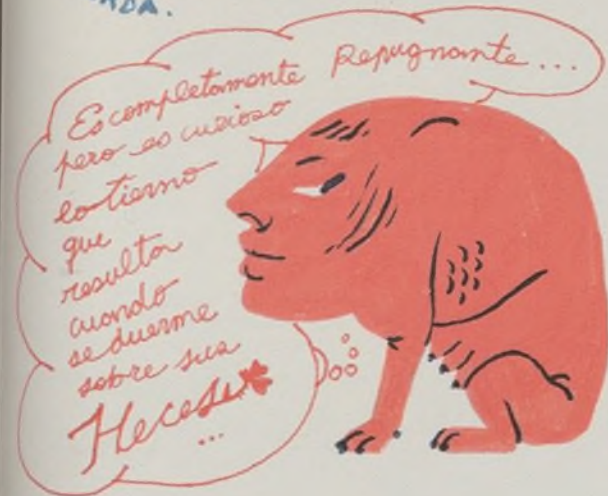 NDA.
Es completamente Repugnante...
pero es curioso
lo tierno
que
resulta
cuando
se duerme
sobre sus
Heces
...